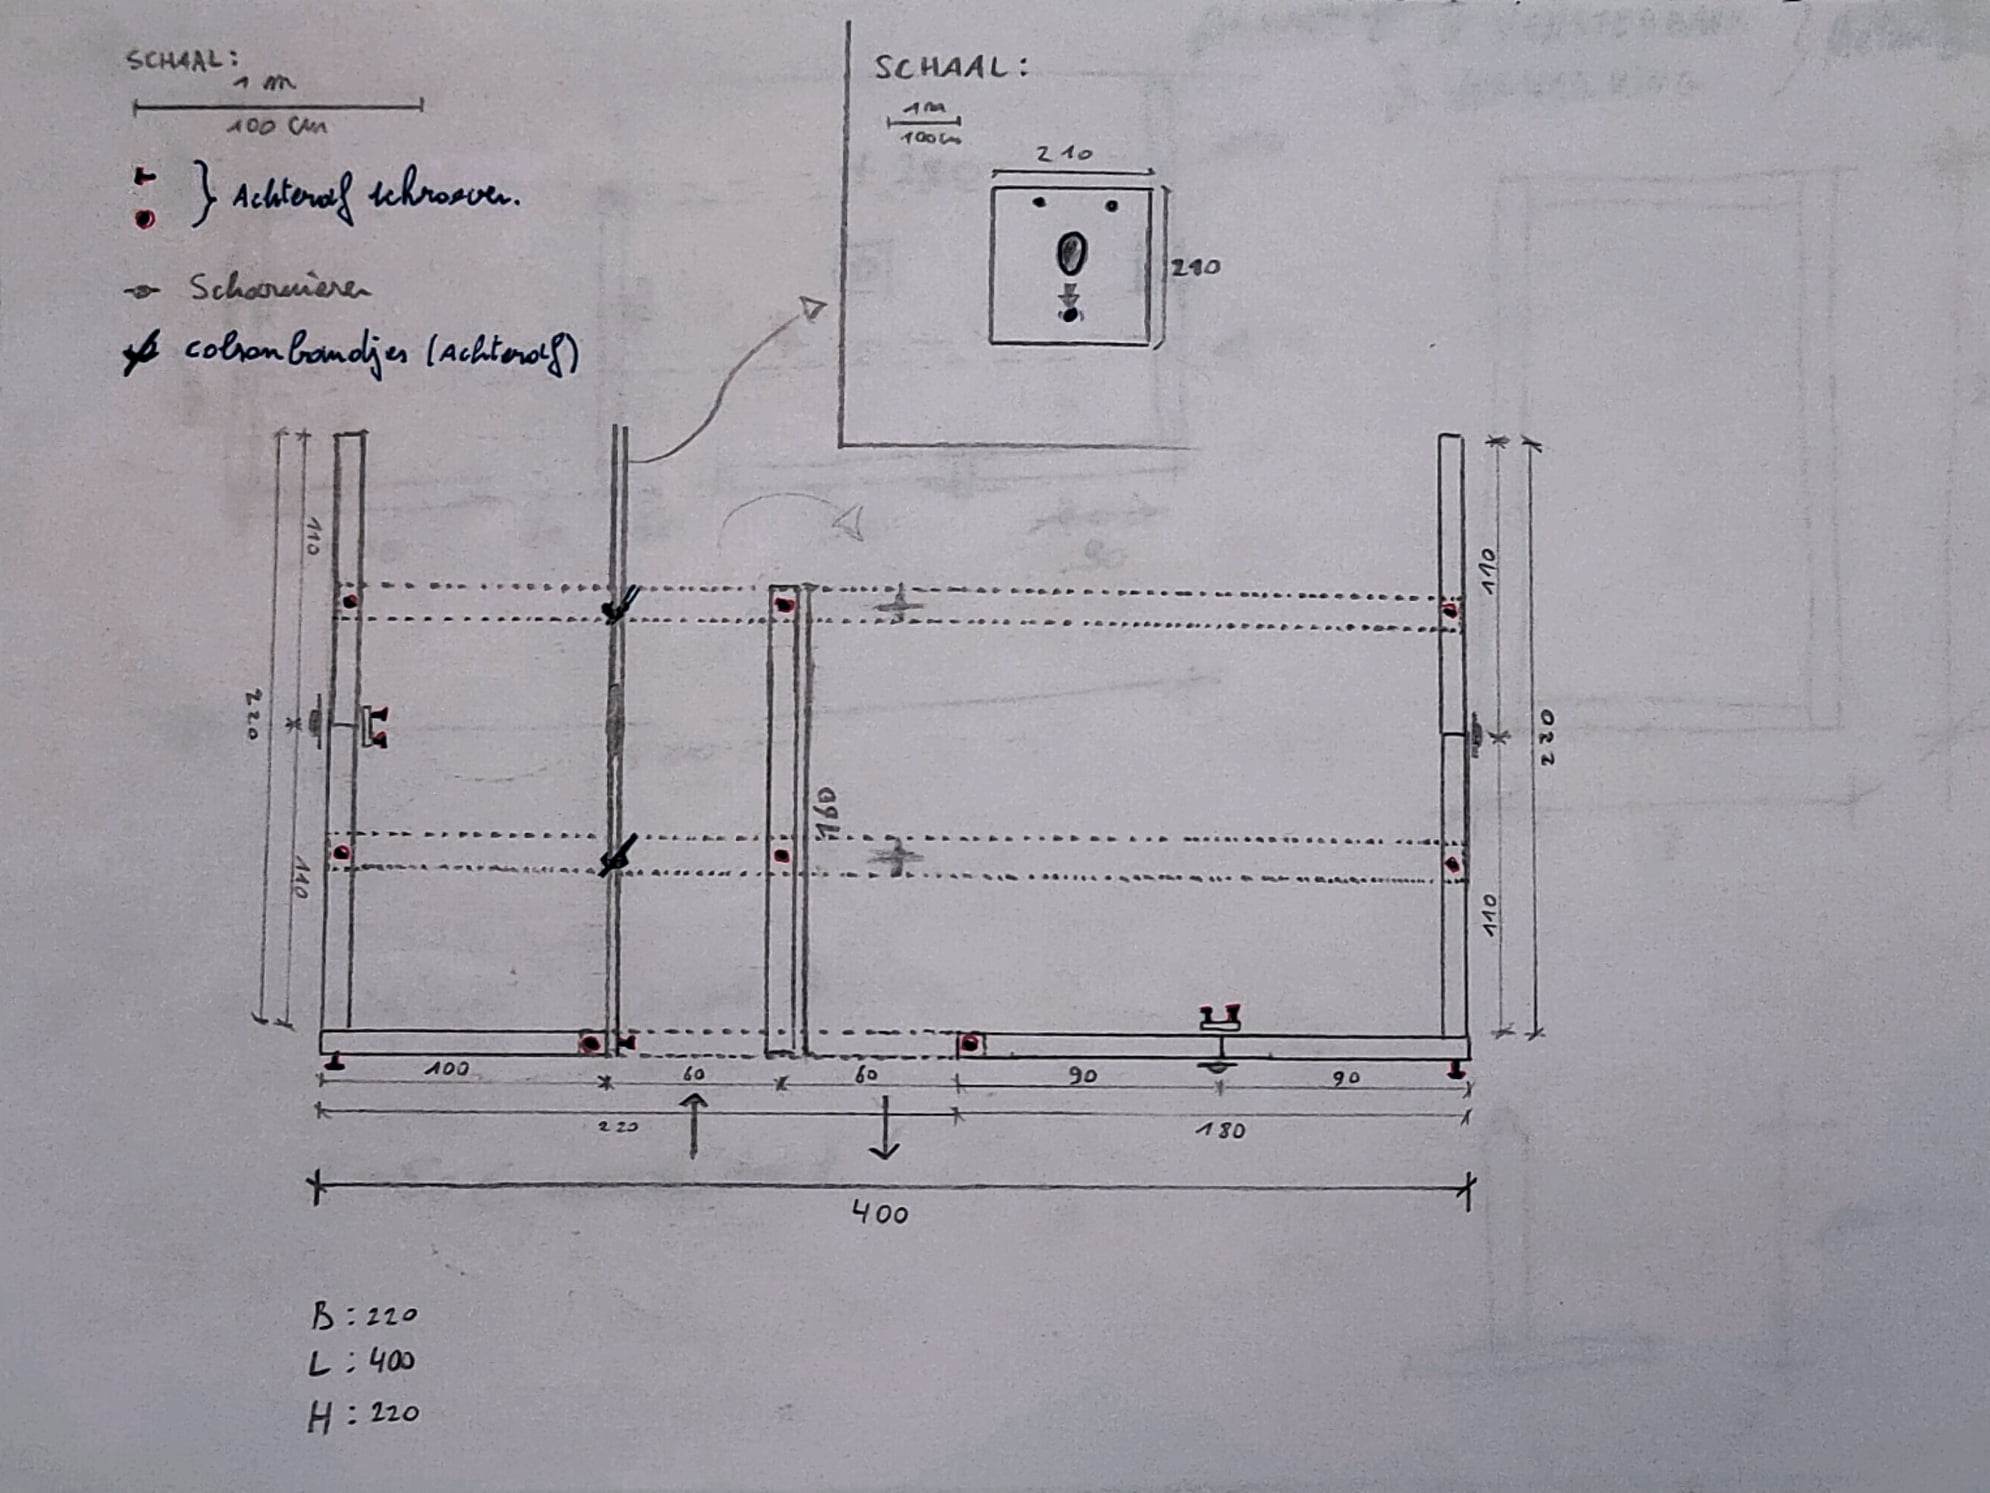 SCHAAL:
1 m
100 cm
Achteraf schroeven.
Scharnieren
colsonbandjes (Achteraf)
SCHAAL:
1m
100cm
210
210
110
220
110
160
110
220
110
100
60
60
90
90
220
180
400
B : 220
L : 400
H : 220